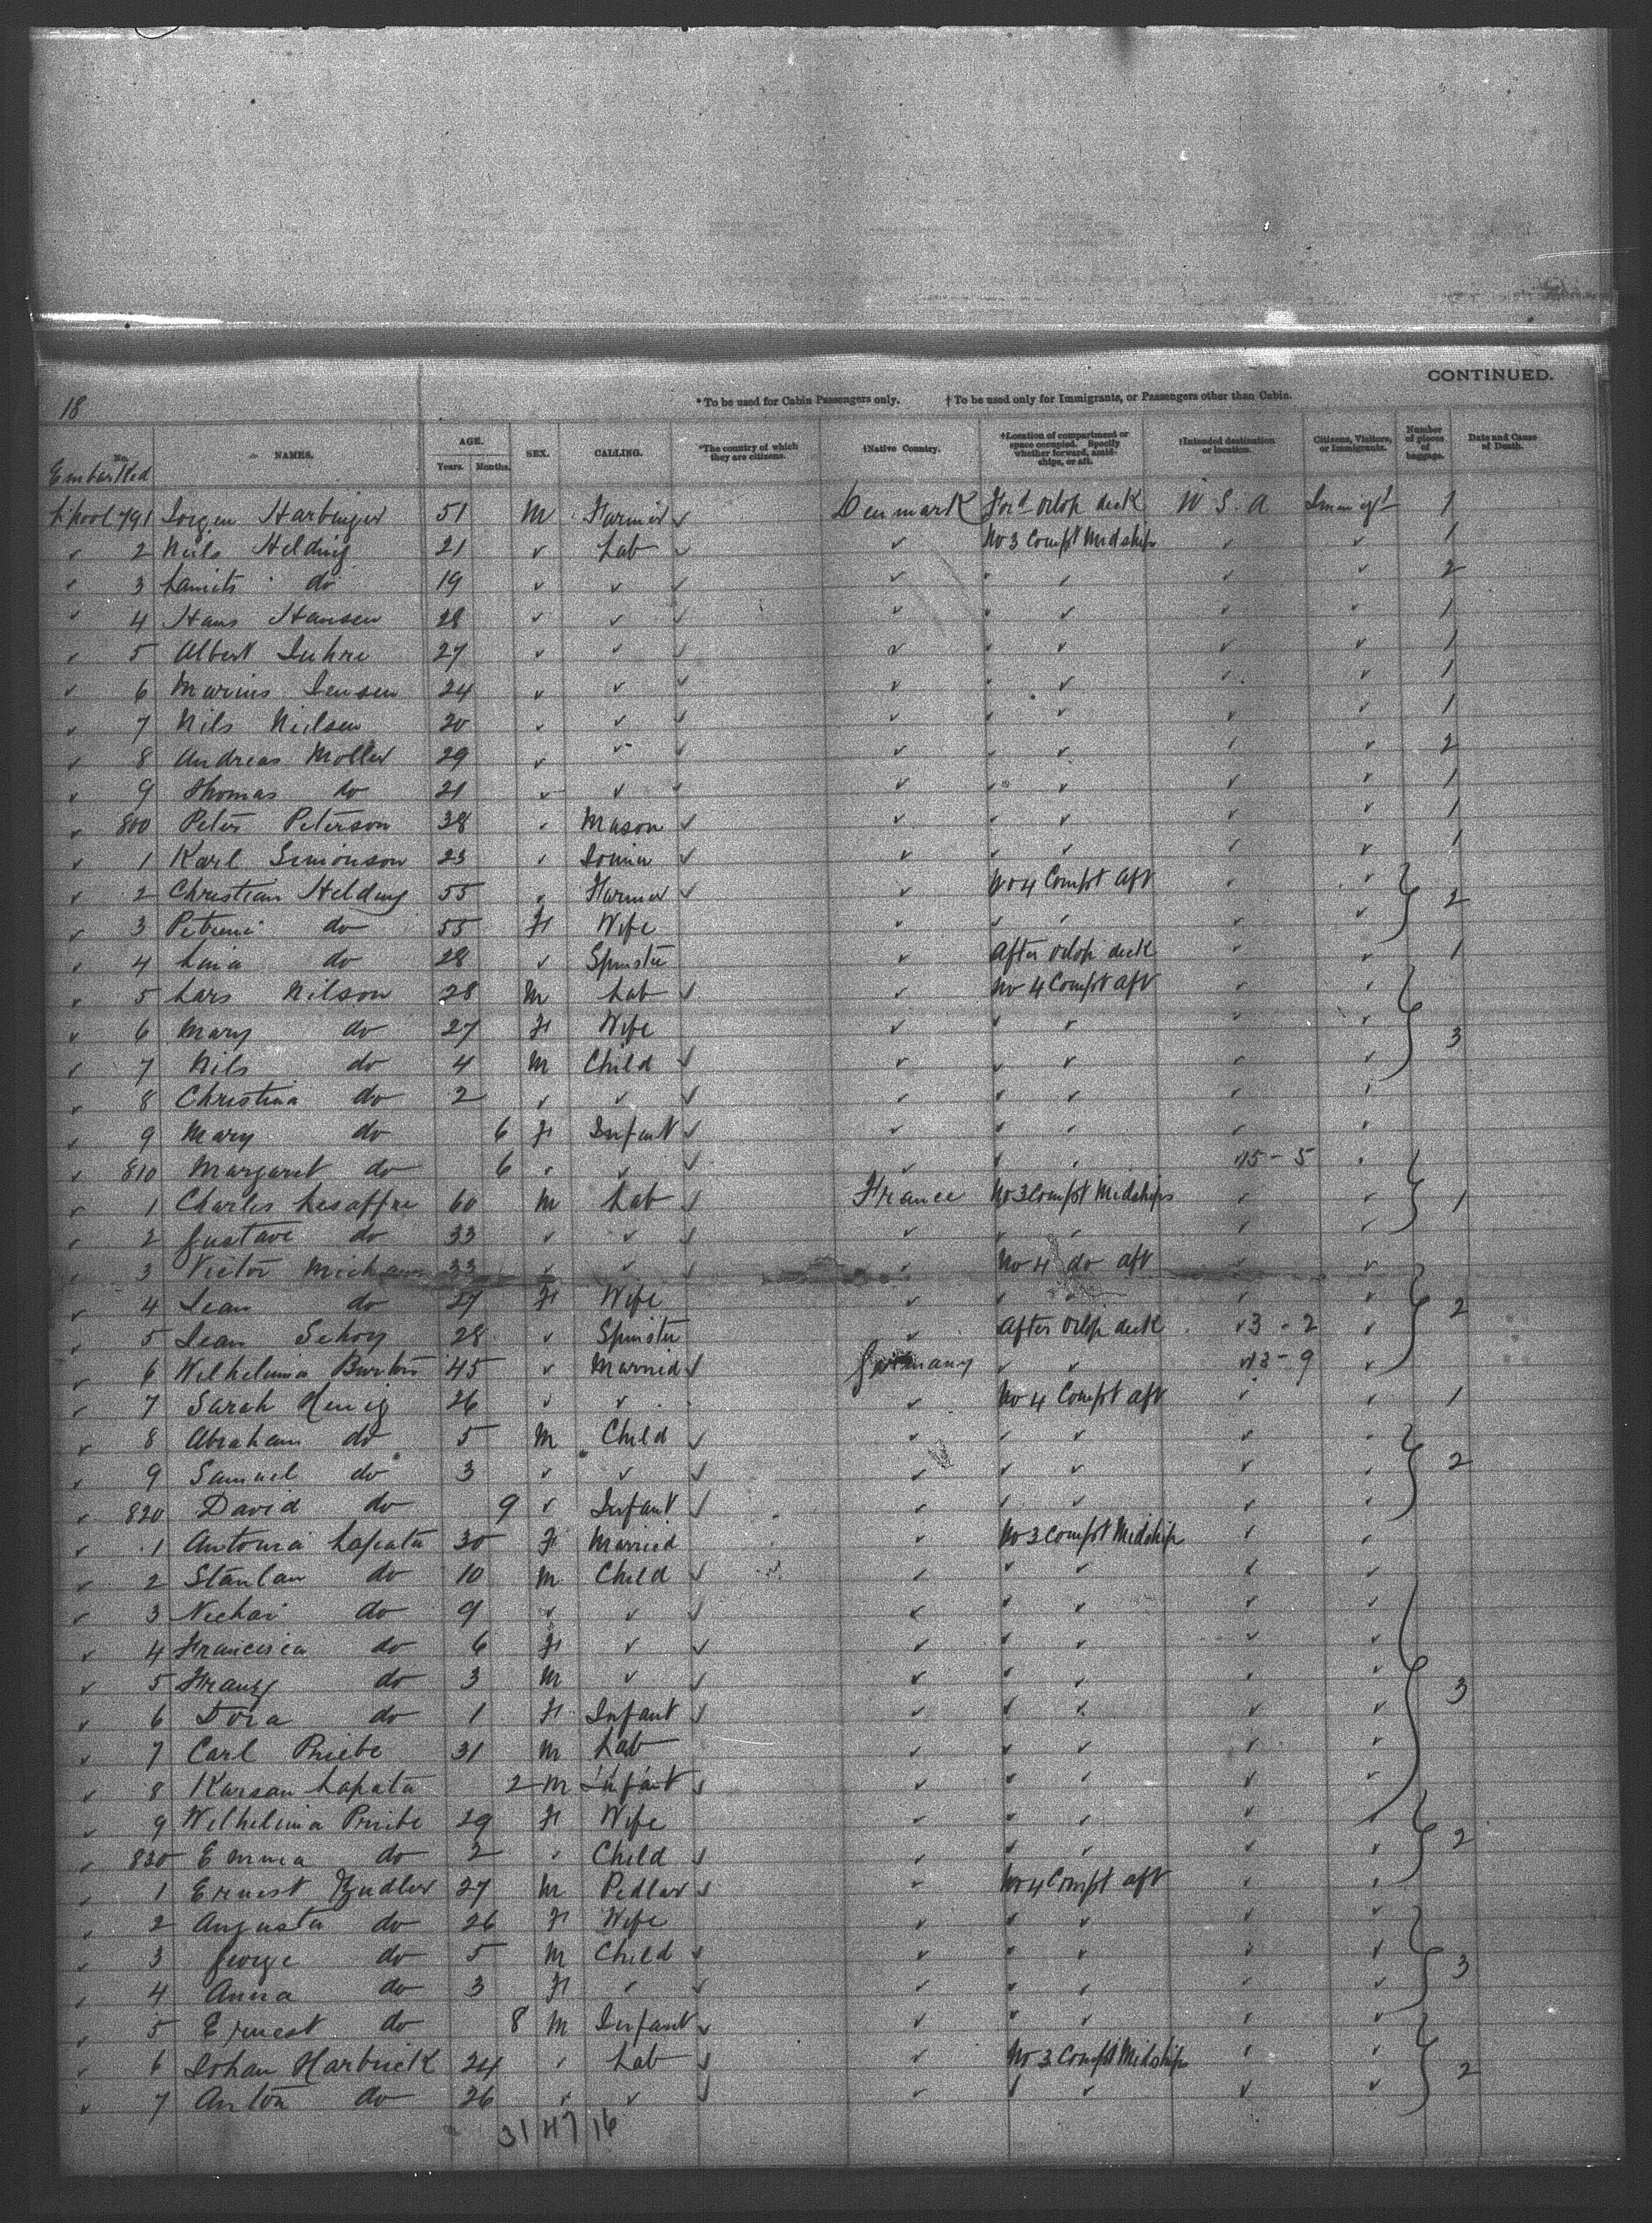 CONTINUED.
18
* To be used for Cabin Passengers only. † To be used only for Immigrants, or Passengers other than Cabin.
No. NAMES. AGE. Years. Months. SEX. CALLING. *The country of which they are citizens. †Native Country. †Location of compartment or space occupied. Specify whether forward, amidships, or aft. †Intended destination or location. Citizens, Visitors, or Immigrants. Number of pieces of baggage. Date and Cause of Death.
Embarked
L'pool 791 Jorgen Harbinger 51 M Farmer ✓ Denmark For'd orlop deck U S. A Immigt 1
✓ 2 Niels Helding 21 ✓ Lab ✓ ✓ No 3 Compt Midship ✓ ✓ 1
✓ 3 do 19 ✓ ✓ ✓ ✓ ✓ ✓ ✓ ✓ 2
✓ 4 Hans Hansen 28 ✓ ✓ ✓ ✓ ✓ ✓ ✓ ✓ 1
✓ 5 Albert Juhre 27 ✓ ✓ ✓ ✓ ✓ ✓ ✓ ✓ 1
✓ 6 Marius Jensen 24 ✓ ✓ ✓ ✓ ✓ ✓ ✓ ✓ 1
✓ 7 Nils Nielsen 20 ✓ ✓ ✓ ✓ ✓ ✓ ✓ ✓ 1
✓ 8 Andreas Moller 29 ✓ ✓ ✓ ✓ ✓ ✓ ✓ ✓ 2
✓ 9 Thomas do 21 ✓ ✓ ✓ ✓ ✓ ✓ ✓ ✓ 1
✓ 800 Peter Peterson 38 ✓ Mason ✓ ✓ ✓ ✓ ✓ ✓ 1
✓ 1 Karl Simonson 23 ✓ Joiner ✓ ✓ ✓ ✓ ✓ ✓ 1
✓ 2 Christian Helding 55 ✓ Farmer ✓ ✓ No 4 Compt aft ✓ ✓ 2
✓ 3 Petrini do 55 F Wife ✓ ✓ ✓ ✓ ✓
✓ 4 Lina do 28 ✓ Spinster ✓ After orlop deck ✓ 1
✓ 5 Lars Nilson 28 M Lab ✓ ✓ No 4 Compt aft ✓ ✓
✓ 6 Mary do 27 F Wife ✓ ✓ ✓ ✓ ✓ 3
✓ 7 Nils do 4 M Child ✓ ✓ ✓ ✓ ✓ ✓
✓ 8 Christina do 2 ✓ ✓ ✓ ✓ ✓ ✓ ✓ ✓
✓ 9 Mary do 6 F Infant ✓ ✓ ✓ ✓ ✓ ✓
✓ 810 Margaret do 6 ✓ ✓ ✓ ✓ ✓ ✓ 15-5 ✓
✓ 1 Charles Lesaffre 60 M Lab ✓ France No 3 Compt Midships ✓ ✓ 1
✓ 2 Gustave do 33 ✓ ✓ ✓ ✓ ✓ ✓ ✓ ✓
✓ 3 Victor 33 ✓ ✓ ✓ ✓ No 4 do aft ✓ ✓
✓ 4 Jean do 27 F Wife ✓ ✓ ✓ ✓ ✓ 2
✓ 5 Jean Schoy 28 ✓ Spinster ✓ After orlop deck 3-2 ✓
✓ 6 Wilhelmina Burton 45 ✓ Married ✓ Germany ✓ ✓ 13-9 ✓
✓ 7 Sarah Kenig 26 ✓ ✓ ✓ No 4 Compt aft ✓ ✓ 1
✓ 8 Abraham do 5 M Child ✓ ✓ ✓ ✓ ✓ ✓
✓ 9 Samuel do 3 ✓ ✓ ✓ ✓ ✓ ✓ ✓ ✓ 2
✓ 820 David do 9 ✓ Infant ✓ ✓ ✓ ✓ ✓ ✓
✓ 1 Antonia Lapata 30 F Married ✓ No 3 Compt Midship ✓ ✓
✓ 2 Stanlaw do 10 M Child ✓ ✓ ✓ ✓ ✓
✓ 3 Nechai do 9 ✓ ✓ ✓ ✓ ✓ ✓ ✓ ✓
✓ 4 Francisca do 6 F ✓ ✓ ✓ ✓ ✓ ✓ ✓
✓ 5 Franz do 3 M ✓ ✓ ✓ ✓ ✓ ✓ ✓ 3
✓ 6 Dora do 1 F Infant ✓ ✓ ✓ ✓ ✓ ✓
✓ 7 Carl Priebe 31 M Lab ✓ ✓ ✓ ✓ ✓
✓ 8 Karsan Lapata 2 M Infant ✓ ✓ ✓ ✓ ✓ ✓
✓ 9 Wilhelmina Priebe 29 F Wife ✓ ✓ ✓ ✓ ✓
✓ 830 Emma do 2 ✓ Child ✓ ✓ ✓ ✓ ✓ ✓ 2
✓ 1 Ernest 27 M Pedlar ✓ ✓ No 4 Compt aft ✓ ✓
✓ 2 Augusta do 26 F Wife ✓ ✓ ✓ ✓ ✓
✓ 3 George do 5 M Child ✓ ✓ ✓ ✓ ✓ ✓
✓ 4 Anna do 3 F ✓ ✓ ✓ ✓ ✓ ✓ ✓ 3
✓ 5 Ernest do 8 M Infant ✓ ✓ ✓ ✓ ✓ ✓
✓ 6 Johan Harbrick 24 ✓ Lab ✓ ✓ No 3 Compt Midship ✓ ✓ 2
✓ 7 Anton do 26 ✓ ✓ ✓ ✓ ✓ ✓ ✓ ✓
31 47 16